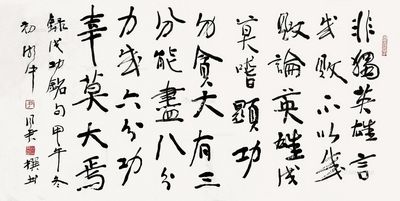 非獨英雄言
成敗不以成
敗論英雄成
莫嗜顯功
勿貪大有三
分能盡八分
力成六分功
幸莫大焉
錄成功銘句甲午冬
初 撰書